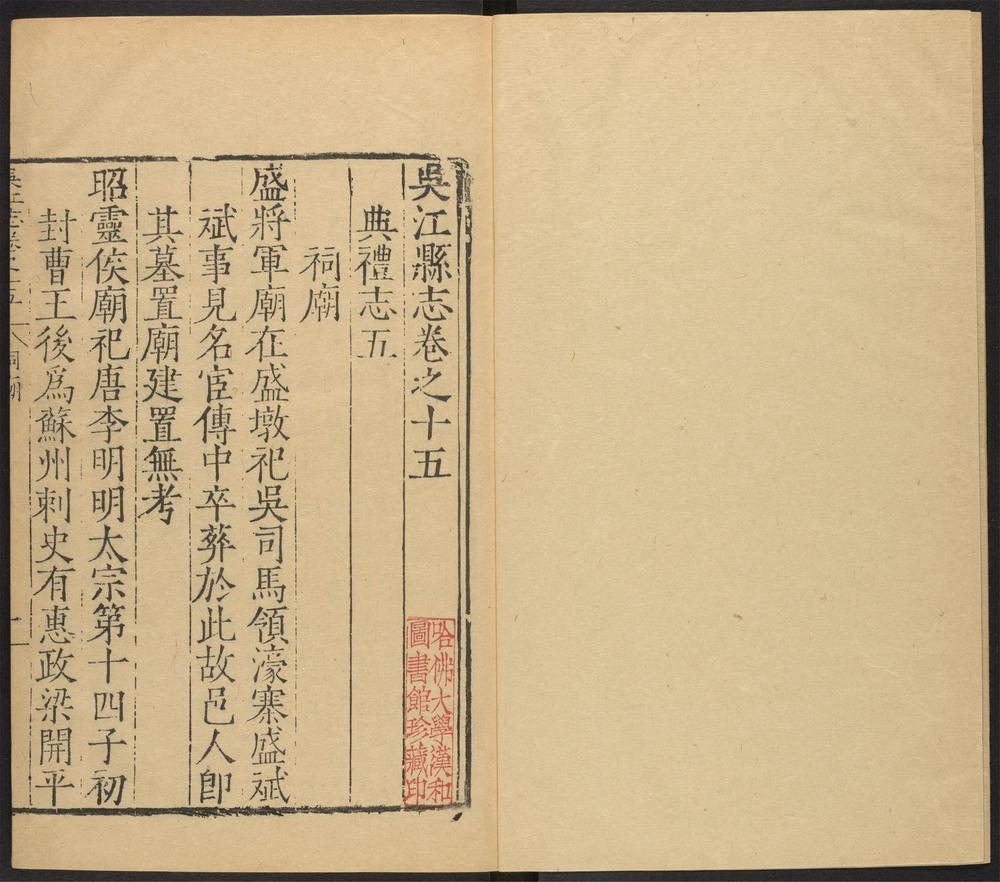 吳江縣志卷之十五
典禮志五
祠廟
盛將軍廟在盛墩祀吳司馬領濠寨盛斌
斌事見名宦傳中卒葬於此故邑人卽
其墓置廟建置無考
昭靈侯廟祀唐李明明太宗第十四子初
封曹王後爲蘇州刺史有惠政梁開平
哈佛大學漢和
圖書館珍藏印